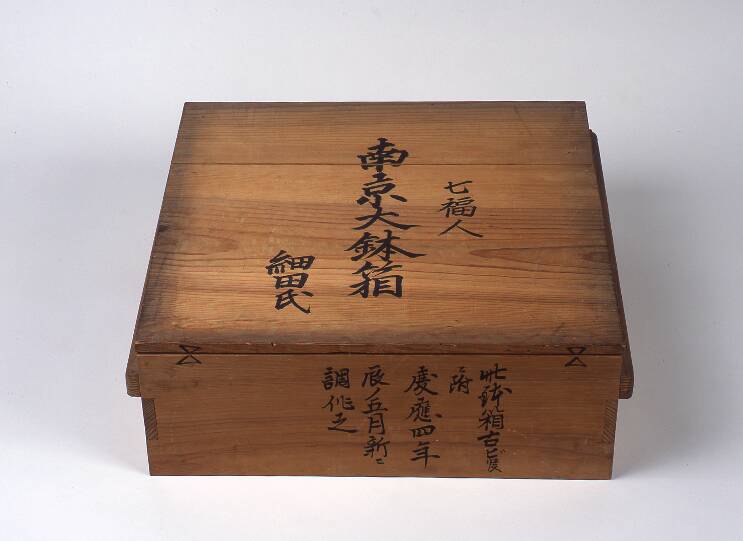 七福人
南京大鉢箱
細田氏
此鉢箱古ビ候
附
慶應四年
辰ノ五月新ニ
調作之